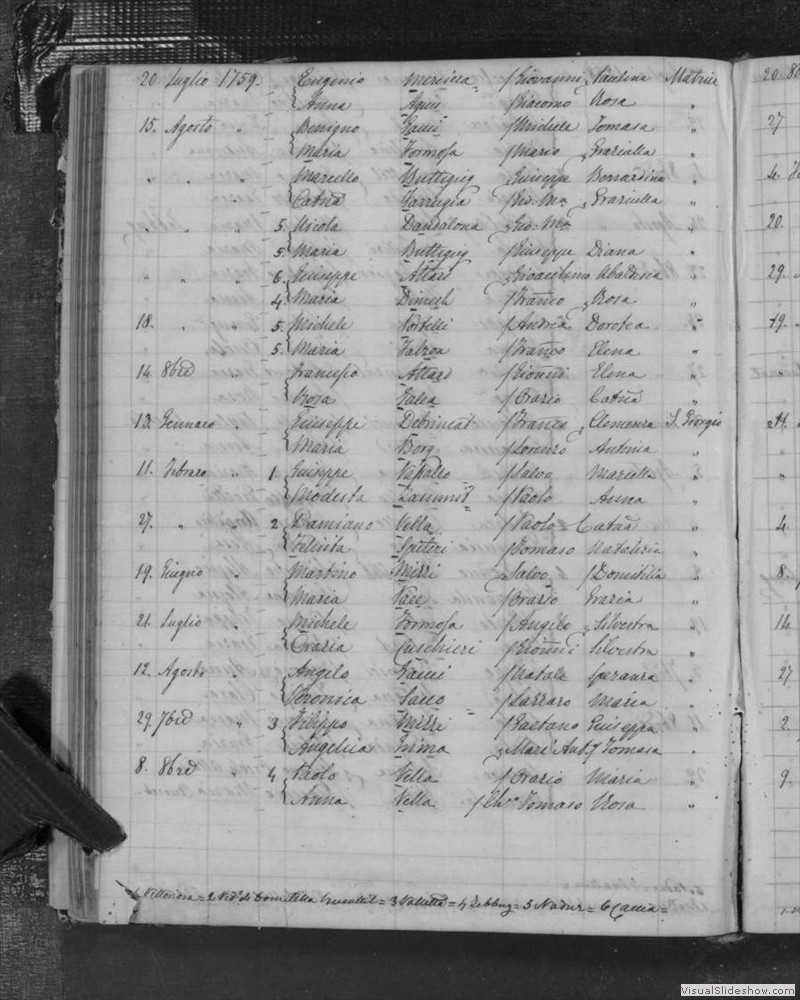 20 Luglio 1759. Eugenio Mercieca Giovanni Paulina Matrice
Anna Agius Giacomo Rosa "
15. Agosto " Benigno Gauci Michele Tomasa "
Maria Formosa Mario Grazialla "
" " " Marcello Buttigieg Giuseppe Bernardina "
Catna Farrugia Gio. Ma. Graziella "
" " " 5. Nicola Dandalona Gio. Ma. "
5. Maria Buttigieg Giuseppe Diana "
" " " 6. Giuseppe Attard Gioachimo "
4. Maria Dimech Franco Rosa "
18. " " 5. Michele Portelli Andrea Dorotea "
5. Maria Falzon Franco Elena "
14. 8bre " Francesco Attard Gionni Elena "
Rosa Galea Orazio Catna "
13. Gennaro " Giuseppe Debrincat Franco Clemenza S. Giorgio
Maria Borg Lorenzo Antonia "
11. Febraro " 1. Giuseppe Vassallo Salvo Mariella "
Modesta Zammit Paolo Anna "
27. " " 2 Damiano Vella Paolo = Catna "
Felicita Spiteri Tomaso Natalizia "
19. Giugno " Martino Mizzi Salvo Domitilla "
Maria Pace Orazio Grazia "
21. Luglio " Michele Formosa Angelo Silvestra "
Grazia Cuschieri Gionni Silvestra "
12. Agosto " Angelo Gauci Natale Speranza "
Veronica Sacco = Lazzaro Maria "
29. 7bre " 3 Filippo Mizzi Gaetano Giuseppa "
Angelica Mari' Ant. Tomasa "
8. 8bre " 4 Paolo Vella Orazio Maria "
Anna Vella Tomaso Rosa "
1 Vittoriosa = 2 Ved. di Domitilla = 3 Valletta = 4 Zebbug = 5 Nadur = 6
20 8b
27
4.
20.
29. "
19. "
24. "
"
4.
8.
14.
27
2.
9.
VisualSlideshow.com